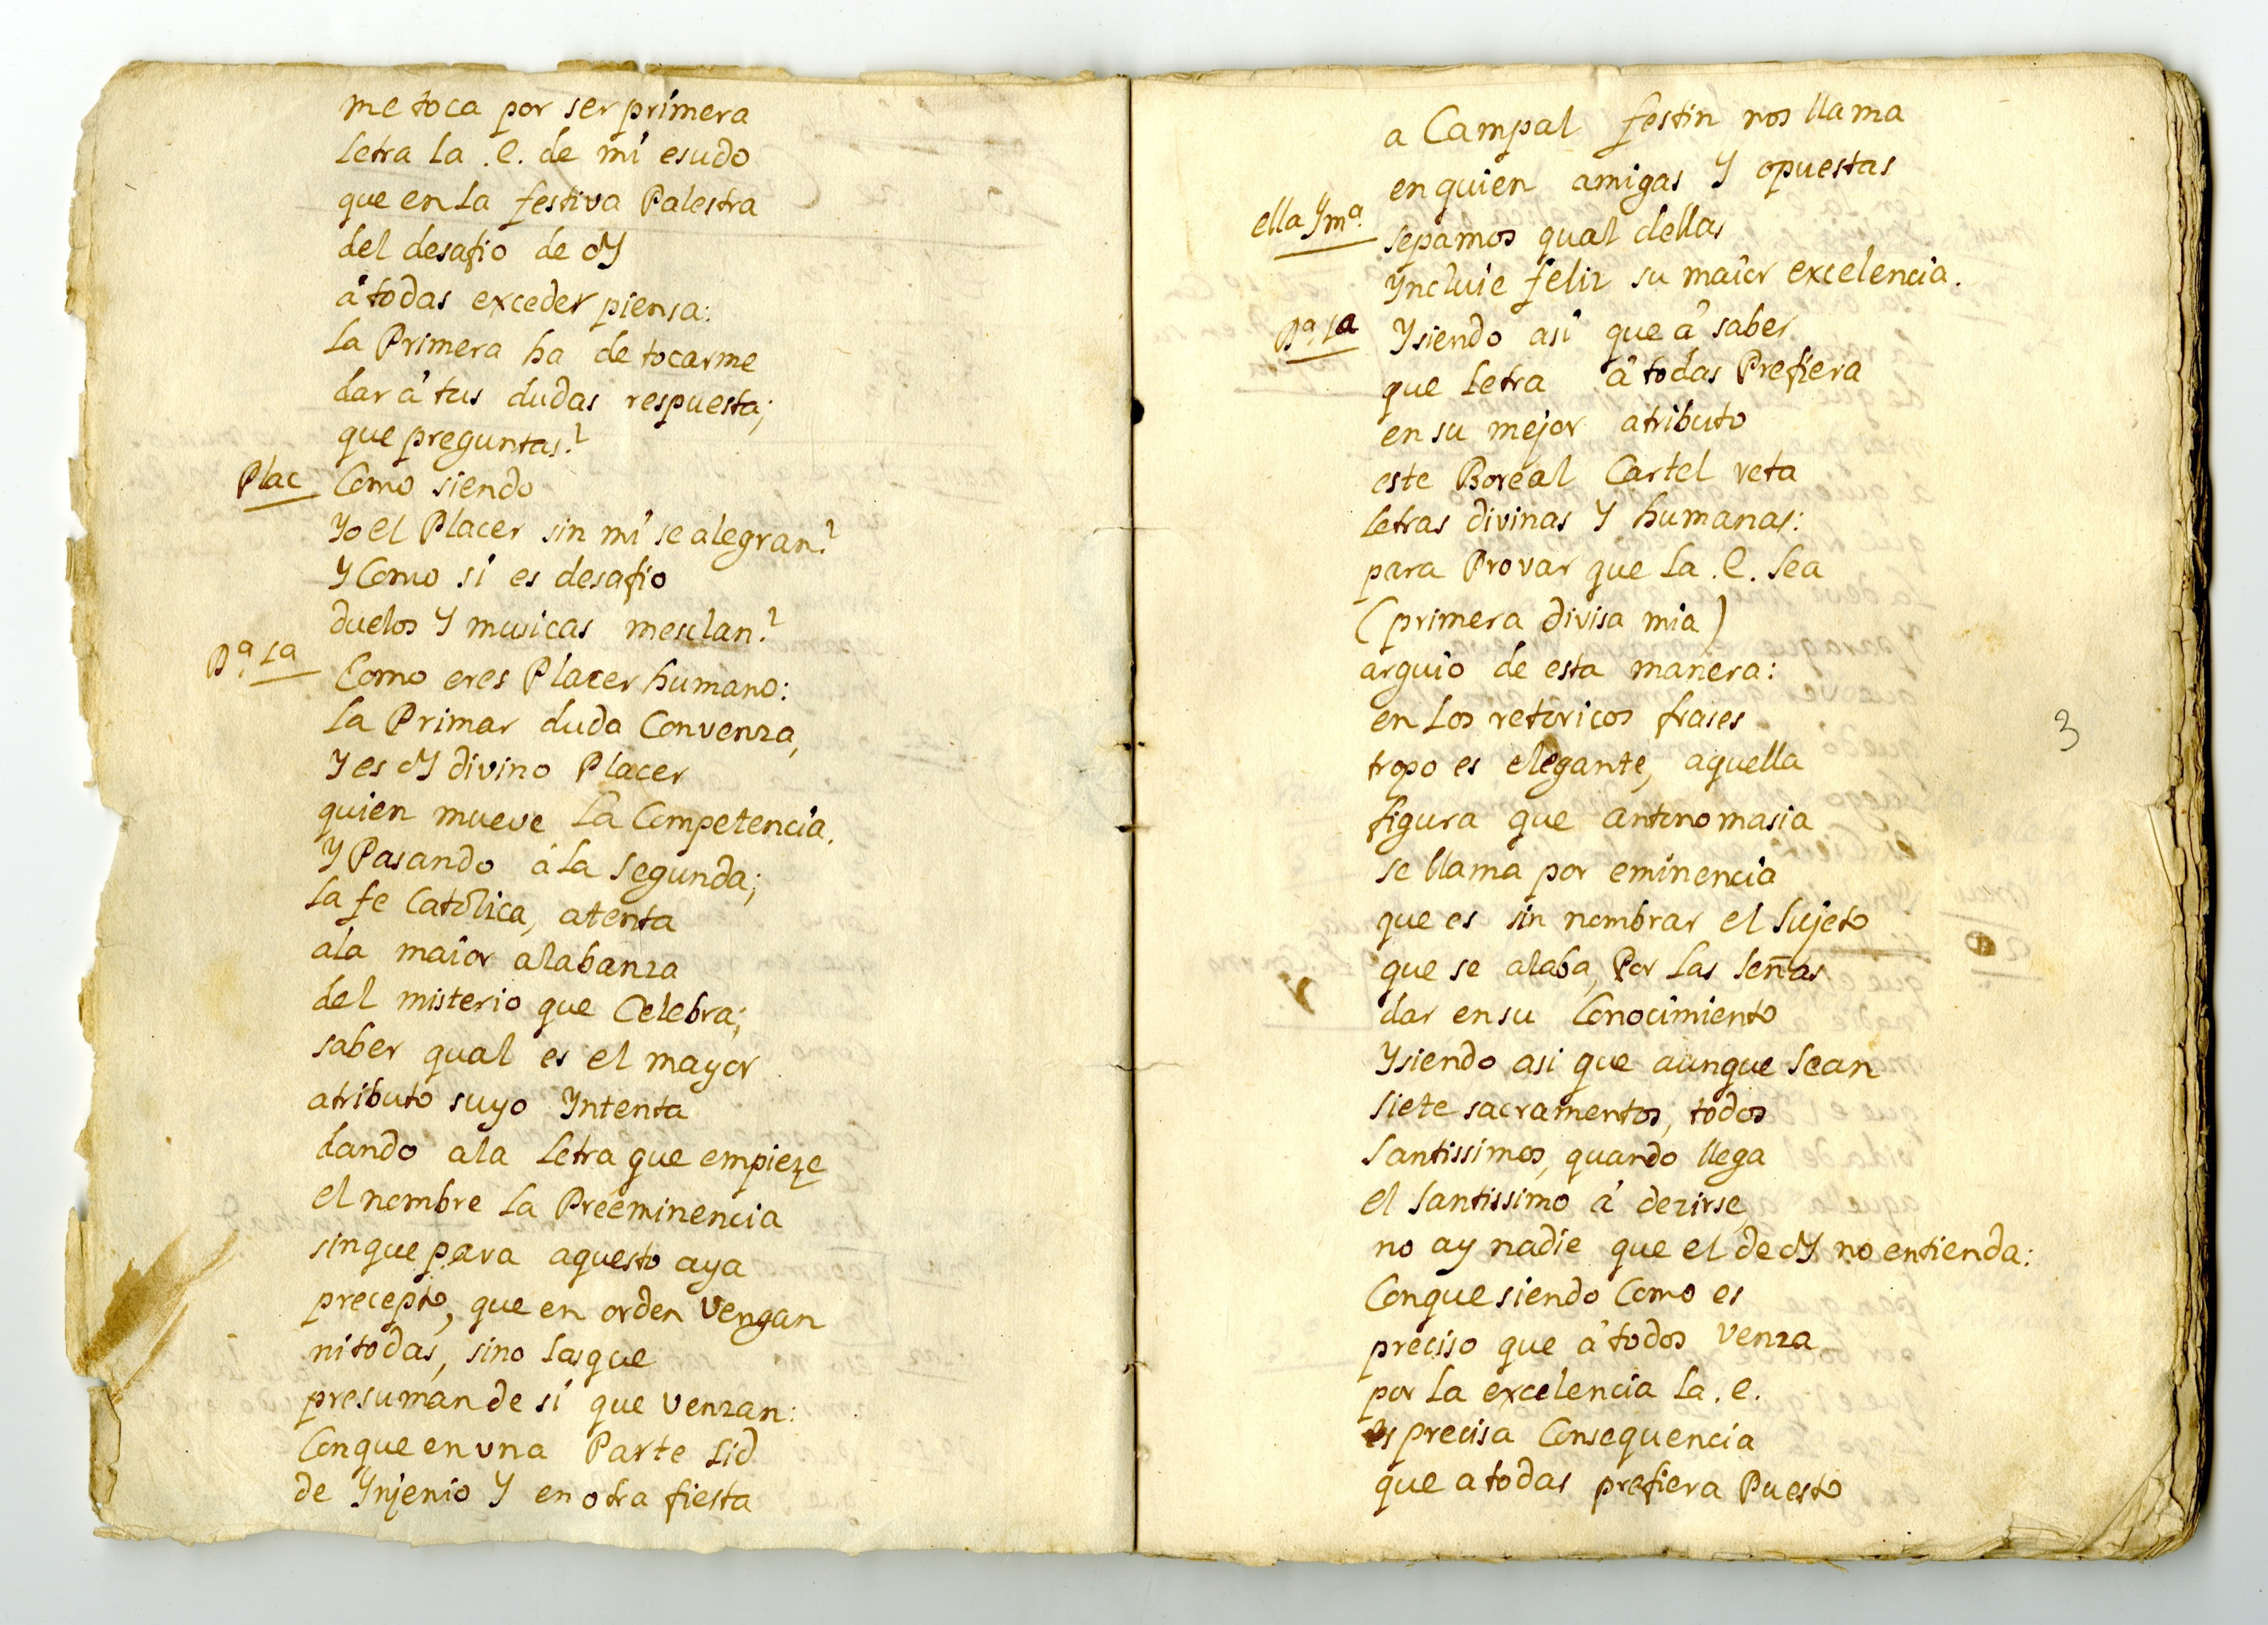 me toca por ser primera
letra la .e. de mi esudo
que en la festiva Palestra
del desafio de oy
á todas exceder piensa:
la Primera ha de tocarme
dar á tus dudas respuesta;
que preguntas?
Plac Como siendo
Yo el Placer sin mi se alegran?
Y Como si es desafio
duelos Y musicas mesclan?
Dª. 1a Como eres Placer humano:
la Primar duda Convenza,
Y es oy divino Placer
quien mueve la Competencia.
Y Pasando á la segunda;
la fe Católica, atenta
ala maior alabanza
del misterio que Celebra;
saber qual es el mayor
atributo suyo Yntenta
dando ala letra que empieze
el nombre la Preeminencia
sin que para aquesto aya
precepto, que en orden vengan
ni todas, sino las que
presuman de si que venzan:
Con que en vna Parte lid
de Ynjenio Y en otra fiesta
a Campal festin nos llama
en quien amigas Y opuestas
ella Ymª. sepamos qual dellas
Yncluie feliz su maior excelencia.
Dª. 1a Y siendo asi que á saber
que letra á todas Prefiera
en su mejor atributo
este Boreal Cartel reta
letras divinas Y humanas:
para Provar que la .e. sea
(primera divisa mia)
arguio de esta manera:
en los retoricos frases
tropo es elegante, aquella
figura que antonomasia
se llama por eminencia
que es sin nombrar el sujeto
que se alaba, Por las señas
dar en su Conocimiento
Y siendo asi que aunque sean
siete sacramentos, todos
santissimos, quando llega
el santissimo á dezirse,
no ay nadie que el de oy no entienda:
Con que siendo Como es
preciso que á todos venza
por la excelencia la .e.
es precisa Consequencia
que a todas prefiera Puesto
3